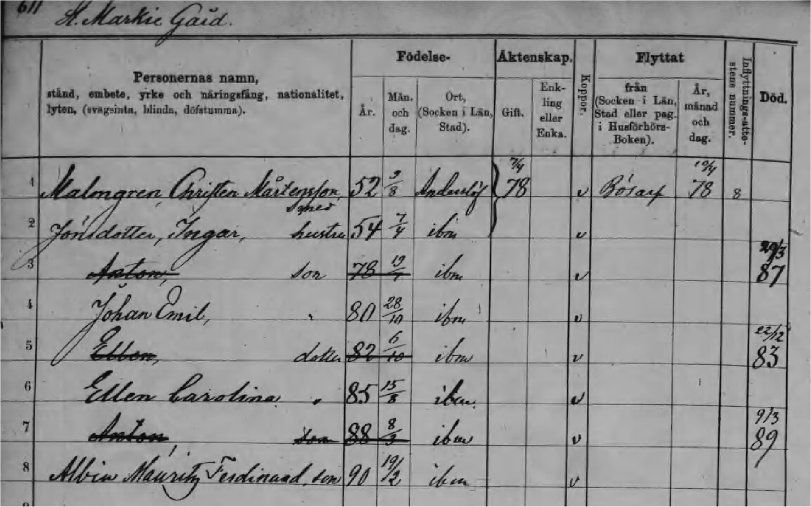 611
St. Markie Gård.
Födelse-
Äktenskap.
Flyttat
Personernas namn,
stånd, embete, yrke och näringsfång, nationalitet,
lyten, (svagsinta, blinda, döfstumma).
År.
Mån. och dag.
Ort, (Socken i Län, Stad).
Gift.
Enkling eller Enka.
Koppor.
från (Socken i Län, Stad eller pag. i Husförhörs-Boken).
År, månad och dag.
Inflyttnings-attestens nummer.
Död.
1 Malmgren, Christen Mårtensson, 52 9/8 Anderslöf 78 v 78 8
smed
2 Jönsdotter, Ingar, hustru 54 7/4 ibm v
3 Anton, son 78 ibm v 29/3 87
4 Johan Emil, " 80 28/10 ibm v
5 Ellen, dotter 82 6/10 ibm v 22/12 83
6 Ellen Carolina " 85 15/8 ibm v
7 Anton son 88 8/3 ibm v 9/3 89
8 Albin Mauritz Ferdinand, son 90 19/2 ibm v